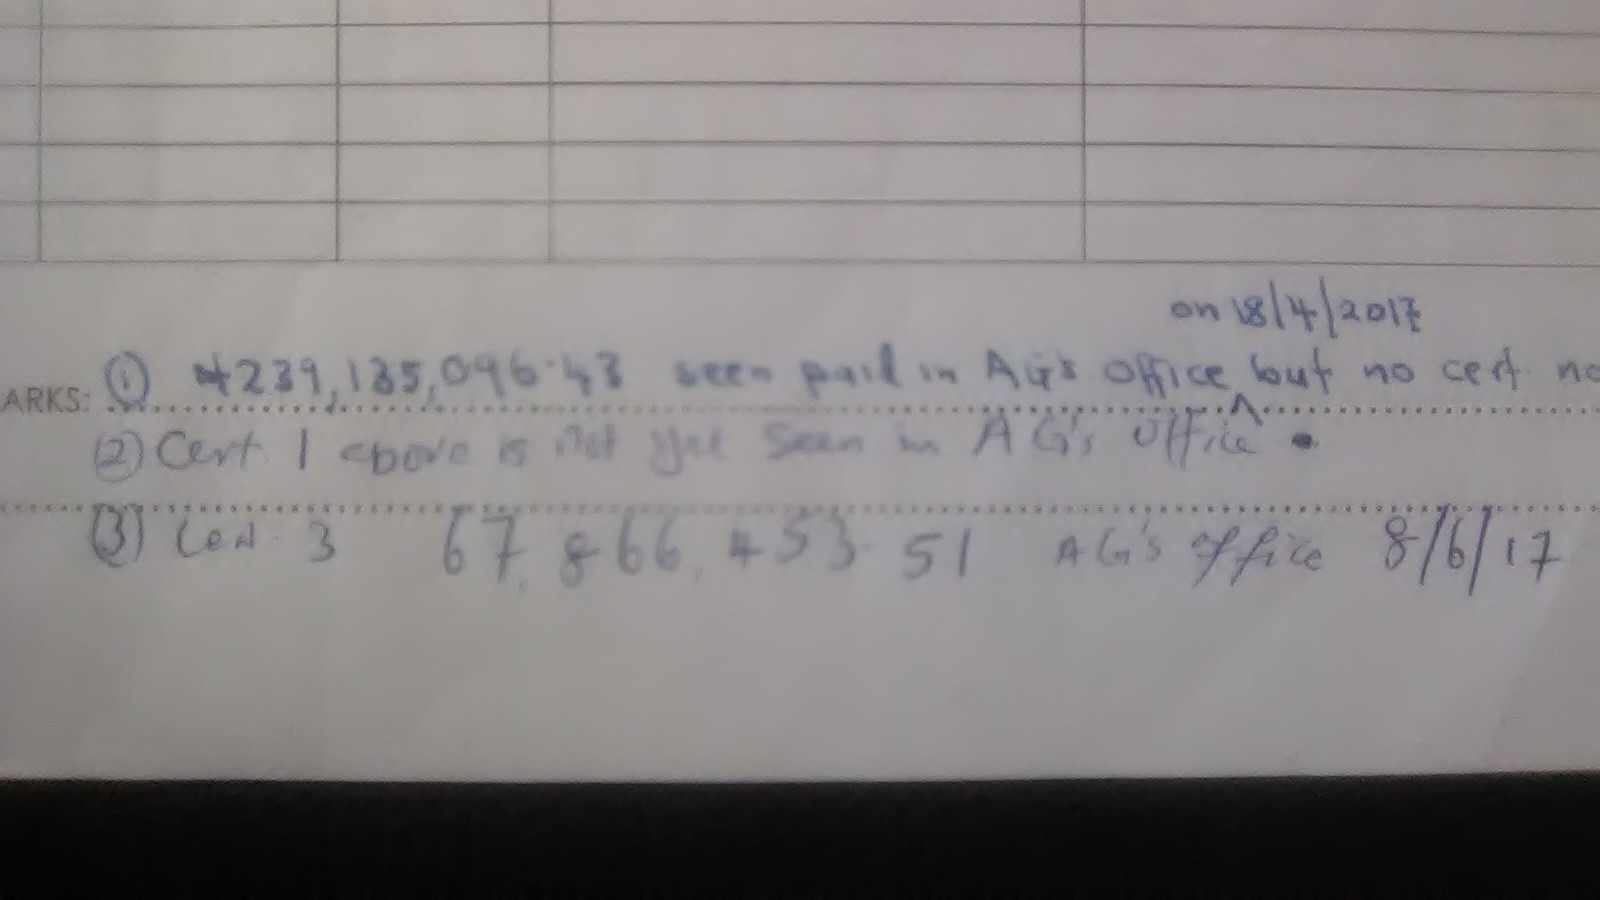 on 18/4/2017
ARKS: ① ₦239,135,096.43 seen paid in AG's office ^ but no cert no
② Cert 1 above is not yet seen in AG's office.
③ Cert 3 67,866,453.51 AG's office 8/6/17